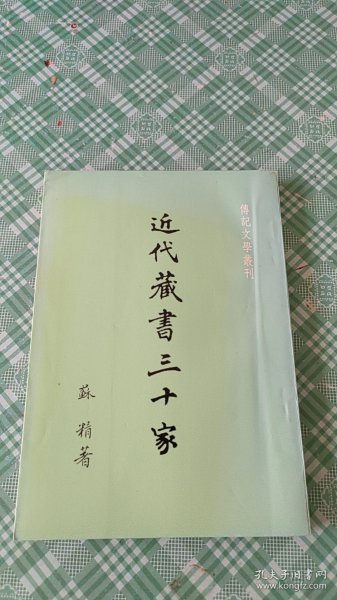 傳記文學叢刊
近代藏書三十家
蘇精著
孔夫子旧书网